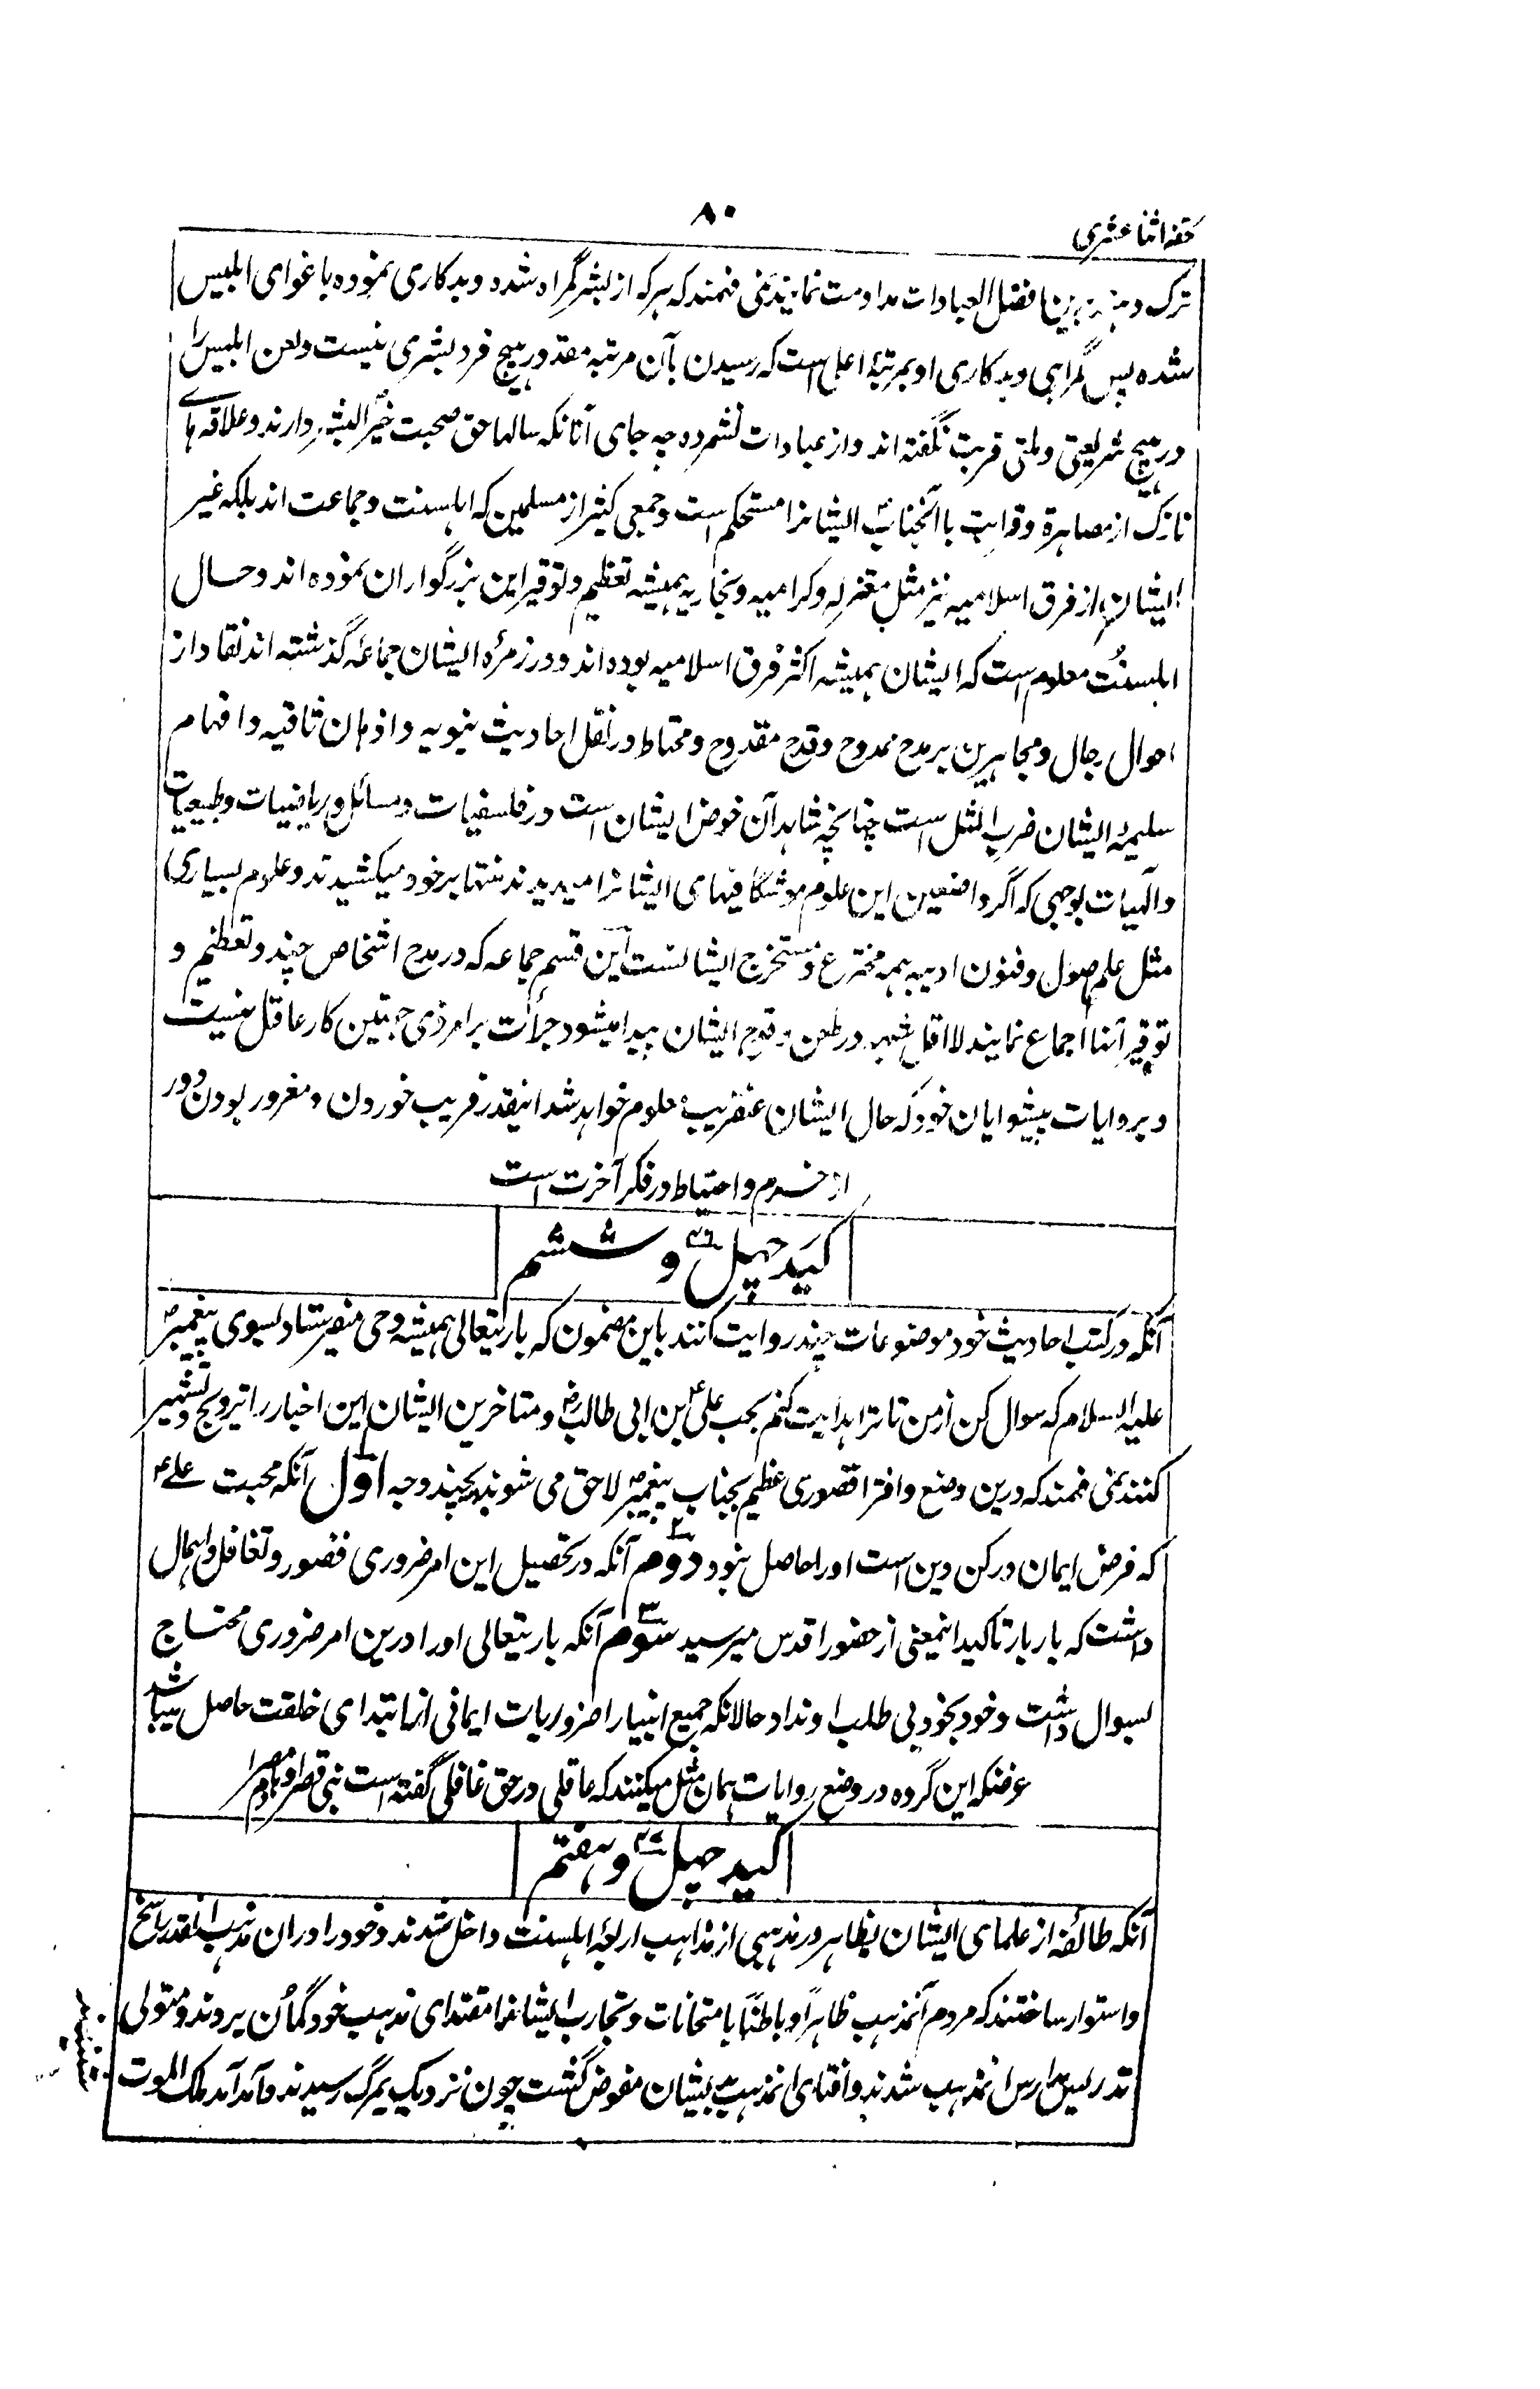 تحفه اثنا عشری
۸۰
ترک دهند و برین افضل العبادات مداومت نمایند نمی فهمند که هر که از بشر گمراه شده و بدکاری نموده باغوای ابلیس
شده پس گمراهی و بدکاری او بمرتبۀ اعلی است که رسیدن بآن مرتبه مقدور هیچ فرد بشری نیست و لعن ابلیس را
در هیچ شریعتی و ملتی قربت نگفته اند و از عبادات نشمرده چه جای آنانکه سالها حق صحبت خیر البشر دارند و علاقه های
نازک از مصاهرة و قرابت با آنجناب ایشانرا مستحکم است و جمعی کثیر از مسلمین که اهلسنت و جماعت اند بلکه غیر
ایشان از فرق اسلامیه نیز مثل معتزله و کرامیه و نجاریه همیشه تعظیم و توقیر این بزرگواران نموده اند و حال
اهلسنت معلوم است که ایشان همیشه اکثر فرق اسلامیه بوده اند و در زمرۀ ایشان جماعه گذشته اند نقاد از
احوال رجال و مجاهرین بر مدح ممدوح و قدح مقدوح و محتاط در نقل احادیث نبویه و اذهان ثاقبه و افهام
سلیمۀ ایشان ضرب المثل است چنانچه شاهد آن خوض ایشان است در فلسفیات و مسائل و ریاضیات و طبیعیات
و الٓهیات بوجهی که اگر واضعین این علوم موشگافیهای ایشانرا میدیدند منتها بر خود میکشیدند و علوم بسیاری
مثل علم اصول و فنون ادبیه همه مخترع و مستخرج ایشانست این قسم جماعه که در مدح اشخاص چند و تعظیم و
توقیر آنها اجماع نمایند لا اقل شبهه در طعن و قدح ایشان پیدا میشود جرأت بر امر ذی جهتین کار عاقل نیست
و بروایات پیشوایان خود که حال ایشان عنقریب معلوم خواهد شد اینقدر فریب خوردن و مغرور بودن دور
از حزم و احتیاط در فکر آخرت است
کید چهل و ششم ۴۶
آنکه در کتب احادیث خود موضوعات چند روایت کنند باین مضمون که باریتعالی همیشه وحی میفرستاد بسوی پیغمبر ص
علیه السلام که سوال کن از من تا ترا هدایت کنم بحب علی ع بن ابی طالب رض و متاخرین ایشان این اخبار را ترویج و تشهیر
کنند نمی فهمند که درین وضع و افترا قصوری عظیم بجناب پیغمبر ص لاحق می شود بچند وجه اول آنکه محبت علی ع
که فرض ایمان و رکن دین است او را حاصل نبود دوم ۲ آنکه در تحصیل این امر ضروری قصور و تغافل و اهمال
داشت که بار بار تاکید اینمعنی از حضور اقدس میرسید سوم ۳ آنکه باریتعالی او را درین امر ضروری محتاج
بسوال داشت و خود بخود بی طلب او نداد حالانکه جمیع انبیا را ضروریات ایمانی از ابتدای خلقت حاصل میباشد
غرضکه این گروه در وضع روایات همان مثل میکنند که عاقلی در حق غافلی گفته است بنی قصرا و هدم مصرا
کید چهل و هفتم ۴۷
آنکه طائفه از علمای ایشان بظاهر در مذهبی از مذاهب اربعۀ اهلسنت داخل شدند و خود را در ان مذهب آنقدر راسخ
و استوار ساختند که مردم آنمذهب ظاهراً و باطناً بامتحانات و تجارب ایشانرا مقتدای مذهب خود گمان بردند و متولی
تدریس مدارس آنمذهب شدند و افتای آنمذهب بایشان مفوض گشت چون نزدیک بمرگ رسیدند و آمد آمد ملک الموت